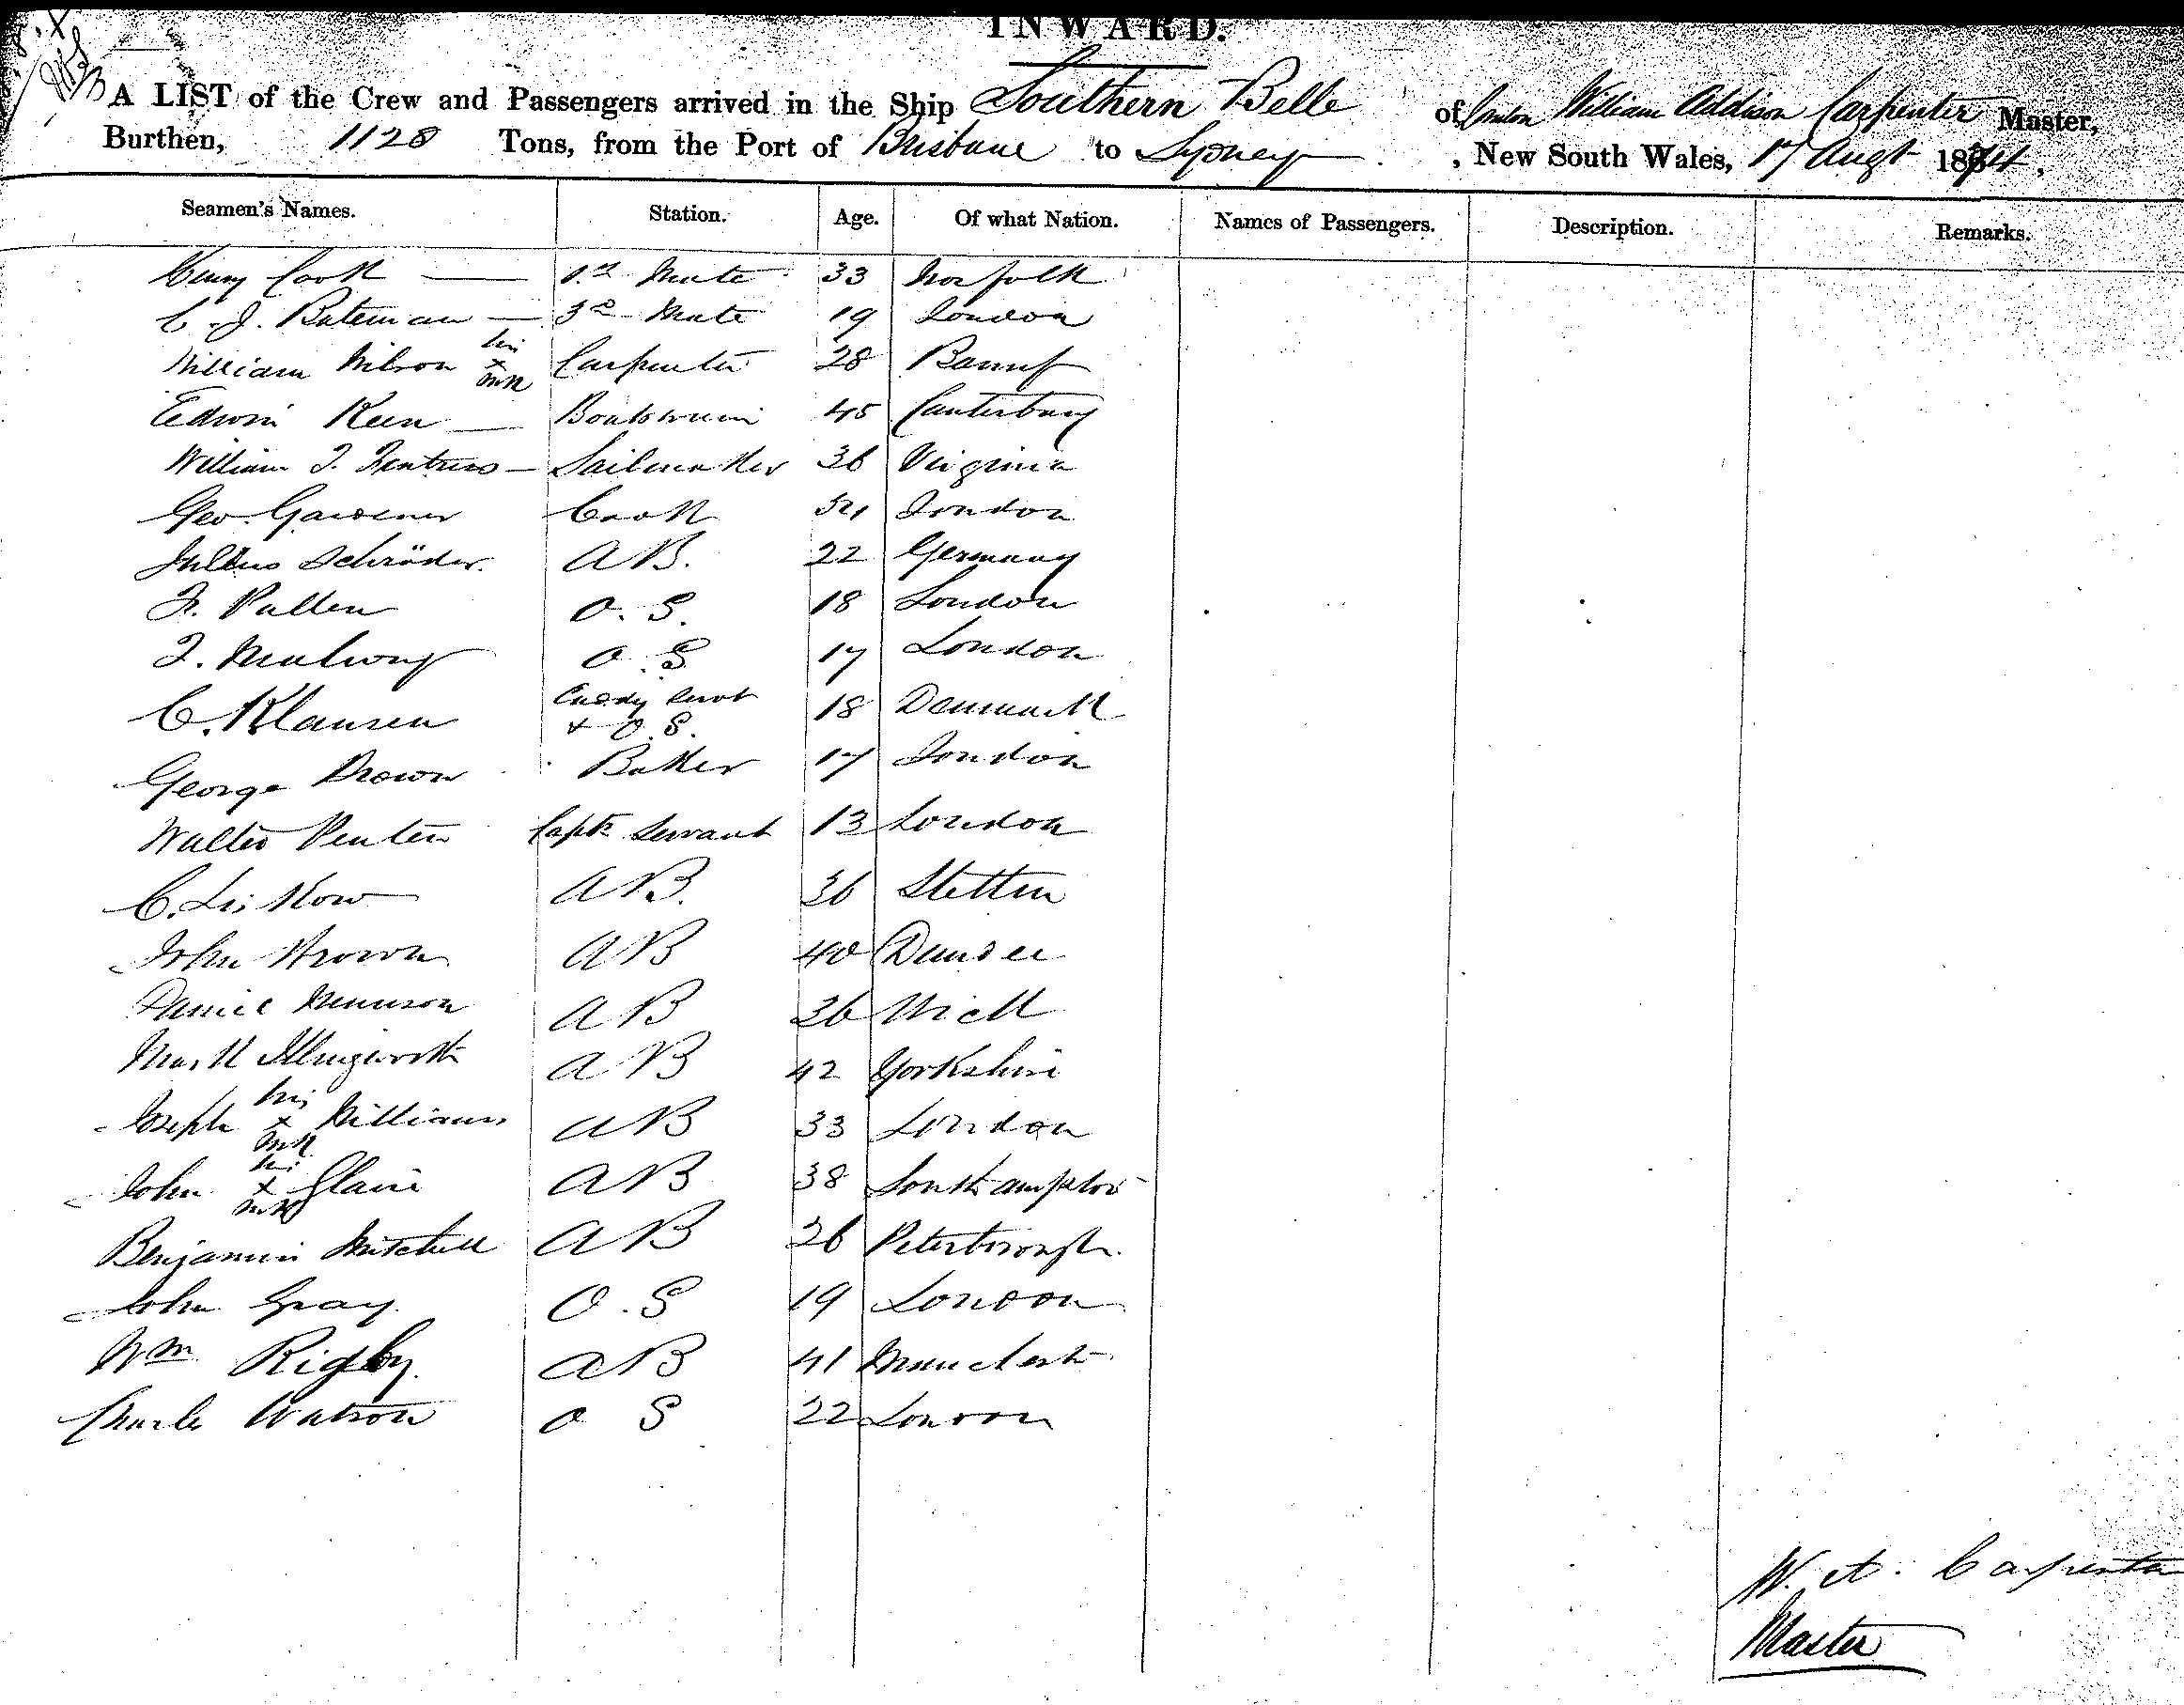 INWARD.
A LIST of the Crew and Passengers arrived in the Ship Southern Belle of London William Addison Carpenter Master,
Burthen, 1128 Tons, from the Port of Brisbane to Sydney, New South Wales, 17 Augt 1874.
Seamen's Names. Station. Age. Of what Nation. Names of Passengers. Description. Remarks.
Henry Cook 1st Mate 33 Norfolk
C. J. Bateman 3d Mate 19 London
William Wilson his x mk Carpenter 28 Bannf
Edwin Keen Boatswain 45 Canterbury
William T. Fentress Sailmaker 36 Virginia
Geo. Gardener Cook London
Julius Schröder A B. 22 Germany
F. Pullen O. S. 18 London
O. S 17 London
C. Klausen Cuddy Servt + O. S. 18 Denmark
George Brown Baker 17 London
Walter Penten Capts Servant 13 London
C. Liskow A B. 36 Stettin
John Brown A B 40 Dundee
A B 36 Wick
Mark Illingworth A B 42 Yorkshire
Joseph his x mk Williams A B 33 London
John his x mk A B 38 Southampton
Benjamin Mitchell A B 26 Peterborough
John Gray O. S 19 London
Wm Rigby. A B 41 Manchestr
Charls Watson O S 22 London
W. A. Carpenter
Master